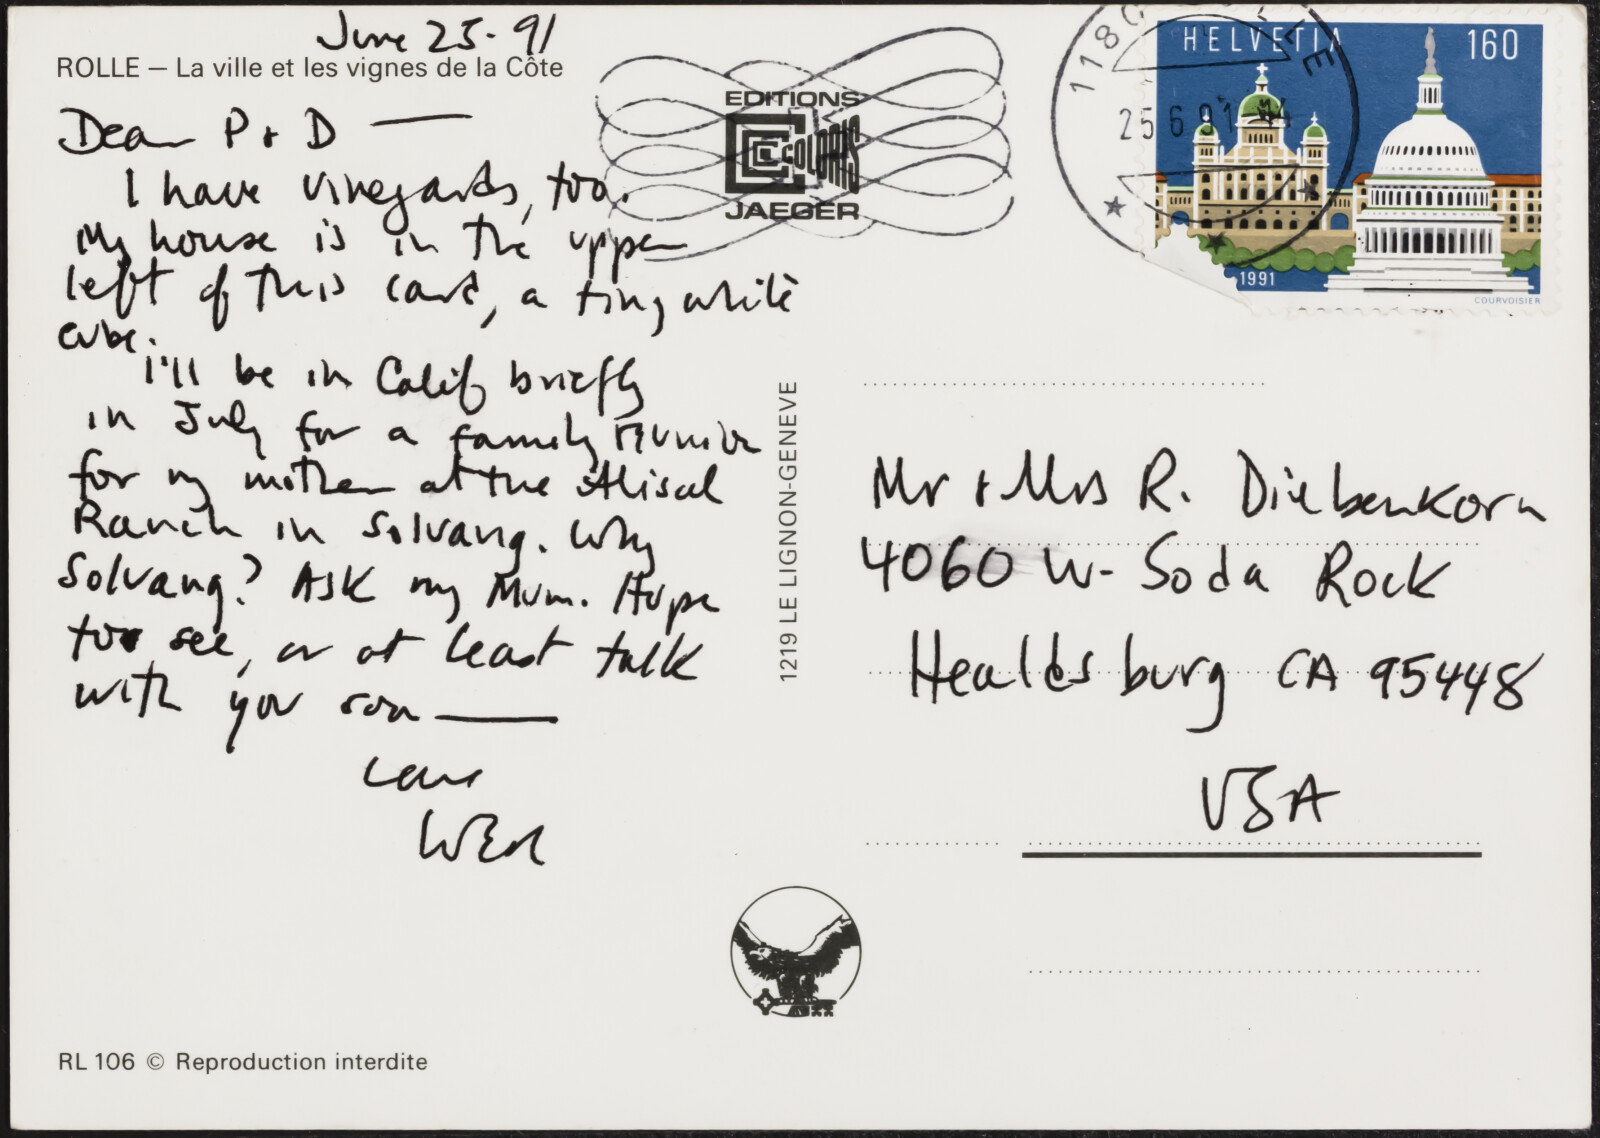 June 25-91
ROLLE — La ville et les vignes de la Côte
Dear P + D —
I have vineyards, too.
My house is in the upper
left of this card, a tiny white
cube.
I'll be in Calif briefly
in July for a family reunion
for my mother at the Alisal
Ranch in Solvang. Why
Solvang? Ask my Mum. Hope
to see, or at least talk
with you soon —
Love
EDITIONS
COLORIS
JAEGER
1219 LE LIGNON-GENEVE
HELVETIA 160
1991
COURVOISIER
25.6.91
Mr + Mrs R. Diebenkorn
4060 W- Soda Rock
Healdsburg CA 95448
USA
RL 106 © Reproduction interdite